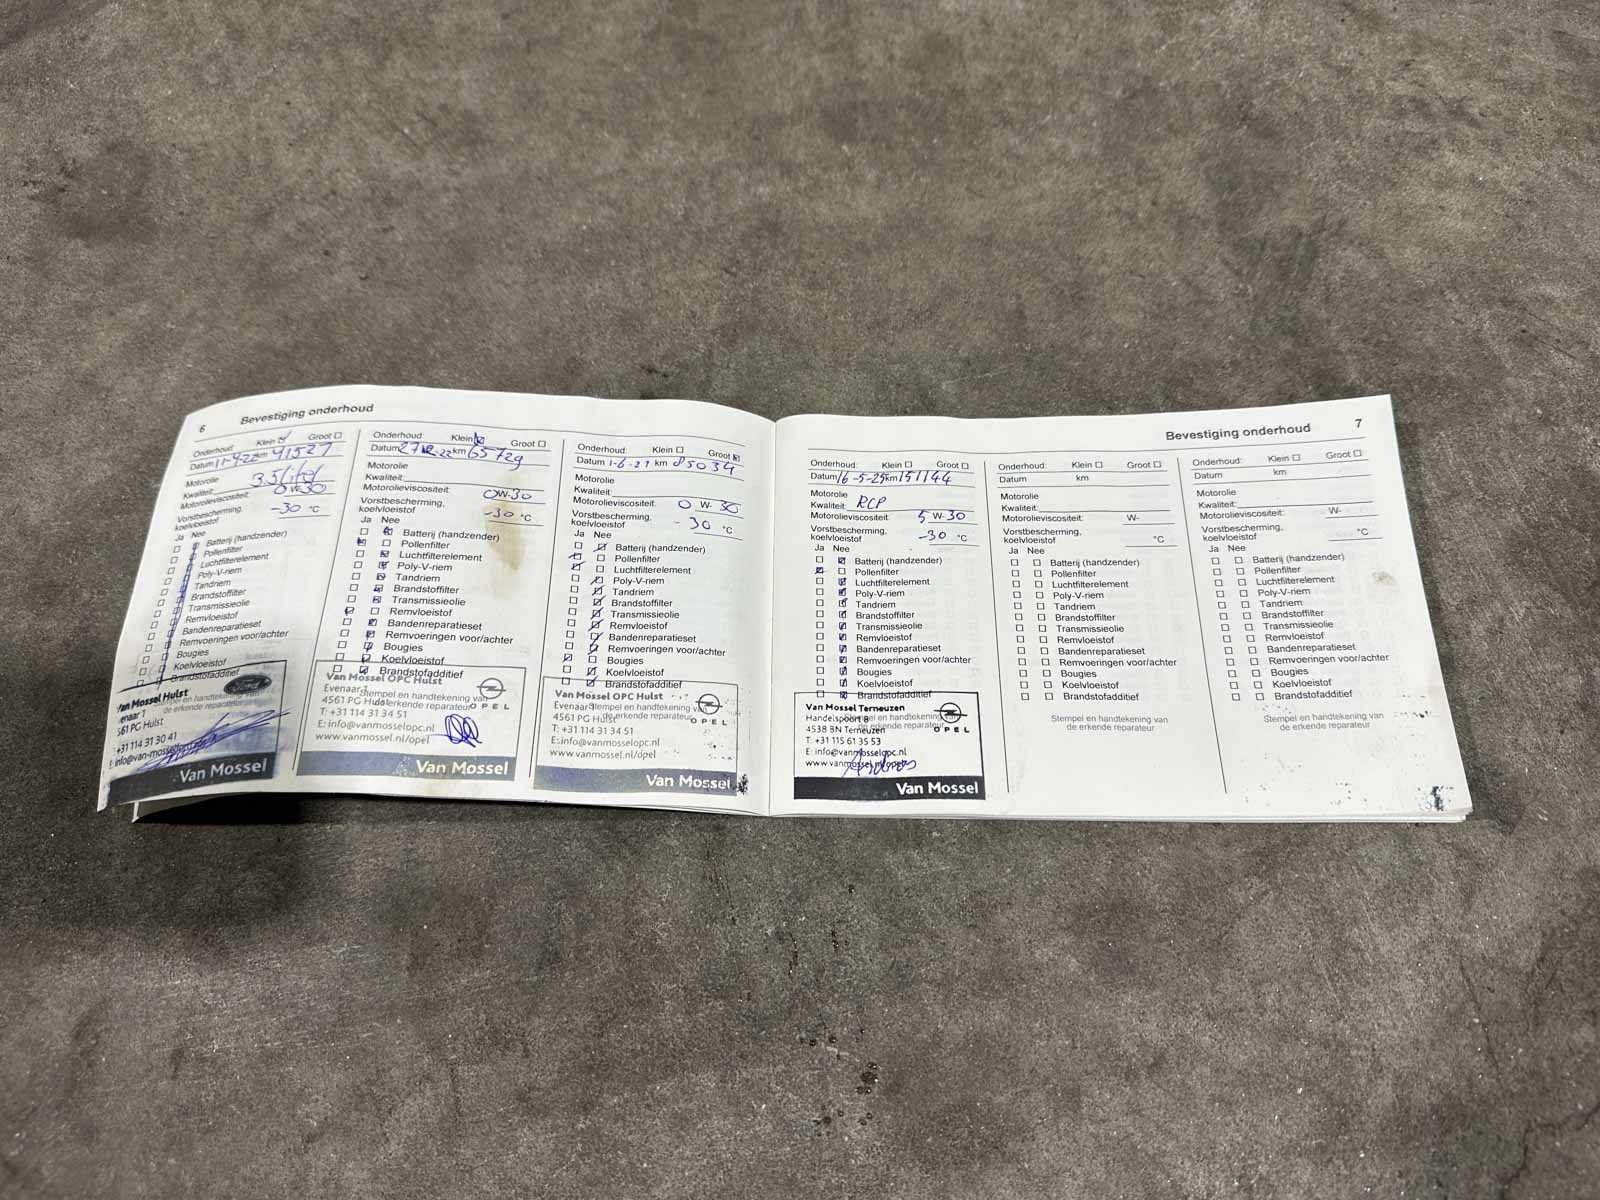 6 Bevestiging onderhoud
Onderhoud: Klein Groot
Datum 11-4-22 km 41527
Motorolie 3.5 liter
Kwaliteit:
Motorolieviscositeit: 0 W-30
Vorstbescherming,
koelvloeistof -30 °C
Ja Nee
Batterij (handzender)
Pollenfilter
Luchtfilterelement
Poly-V-riem
Tandriem
Brandstoffilter
Transmissieolie
Remvloeistof
Bandenreparatieset
Remvoeringen voor/achter
Bougies
Koelvloeistof
Brandstofadditief
Van Mossel Hulst
Stempel en handtekening van
de erkende reparateur
61 PG Hulst
+31 114 31 30 41
Van Mossel
Onderhoud: Klein Groot
Datum 27 12-22 km 65729
Motorolie
Kwaliteit:
Motorolieviscositeit: 0W-30
Vorstbescherming,
koelvloeistof -30 °C
Ja Nee
Batterij (handzender)
Pollenfilter
Luchtfilterelement
Poly-V-riem
Tandriem
Brandstoffilter
Transmissieolie
Remvloeistof
Bandenreparatieset
Remvoeringen voor/achter
Bougies
Koelvloeistof
Brandstofadditief
Van Mossel OPC Hulst
Evenaar 1
Stempel en handtekening van
4561 PG Hulst
de erkende reparateur
OPEL
T: +31 114 31 34 51
E: info@vanmosselopc.nl
www.vanmossel.nl/opel
Van Mossel
Onderhoud: Klein Groot
Datum 1-6-21 km 85034
Motorolie
Kwaliteit:
Motorolieviscositeit: 0 W- 30
Vorstbescherming,
koelvloeistof -30 °C
Ja Nee
Batterij (handzender)
Pollenfilter
Luchtfilterelement
Poly-V-riem
Tandriem
Brandstoffilter
Transmissieolie
Remvloeistof
Bandenreparatieset
Remvoeringen voor/achter
Bougies
Koelvloeistof
Brandstofadditief
Van Mossel OPC Hulst
Evenaar
Stempel en handtekening van
4561 PG Hulst
de erkende reparateur
OPEL
T: +31 114 31 34 51
E: info@vanmosselopc.nl
www.vanmossel.nl/opel
Van Mossel
Bevestiging onderhoud 7
Onderhoud: Klein Groot
Datum 16-5-25 km 151144
Motorolie
Kwaliteit: RCP
Motorolieviscositeit: 5 W-30
Vorstbescherming,
koelvloeistof -30 °C
Ja Nee
Batterij (handzender)
Pollenfilter
Luchtfilterelement
Poly-V-riem
Tandriem
Brandstoffilter
Transmissieolie
Remvloeistof
Bandenreparatieset
Remvoeringen voor/achter
Bougies
Koelvloeistof
Brandstofadditief
Van Mossel Terneuzen
Handelspoort 8
Stempel en handtekening van
4538 BN Terneuzen
de erkende reparateur
OPEL
T: +31 115 61 35 53
E: info@vanmosselopc.nl
www.vanmossel.nl/opel
Van Mossel
Onderhoud: Klein Groot
Datum km
Motorolie
Kwaliteit:
Motorolieviscositeit: W-
Vorstbescherming,
koelvloeistof °C
Ja Nee
Batterij (handzender)
Pollenfilter
Luchtfilterelement
Poly-V-riem
Tandriem
Brandstoffilter
Transmissieolie
Remvloeistof
Bandenreparatieset
Remvoeringen voor/achter
Bougies
Koelvloeistof
Brandstofadditief
Stempel en handtekening van
de erkende reparateur
Onderhoud: Klein Groot
Datum km
Motorolie
Kwaliteit:
Motorolieviscositeit: W-
Vorstbescherming,
koelvloeistof °C
Ja Nee
Batterij (handzender)
Pollenfilter
Luchtfilterelement
Poly-V-riem
Tandriem
Brandstoffilter
Transmissieolie
Remvloeistof
Bandenreparatieset
Remvoeringen voor/achter
Bougies
Koelvloeistof
Brandstofadditief
Stempel en handtekening van
de erkende reparateur